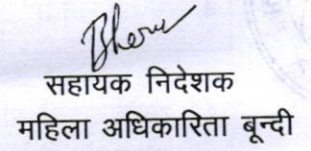 सहायक निदेशक
महिला अधिकारिता बून्दी